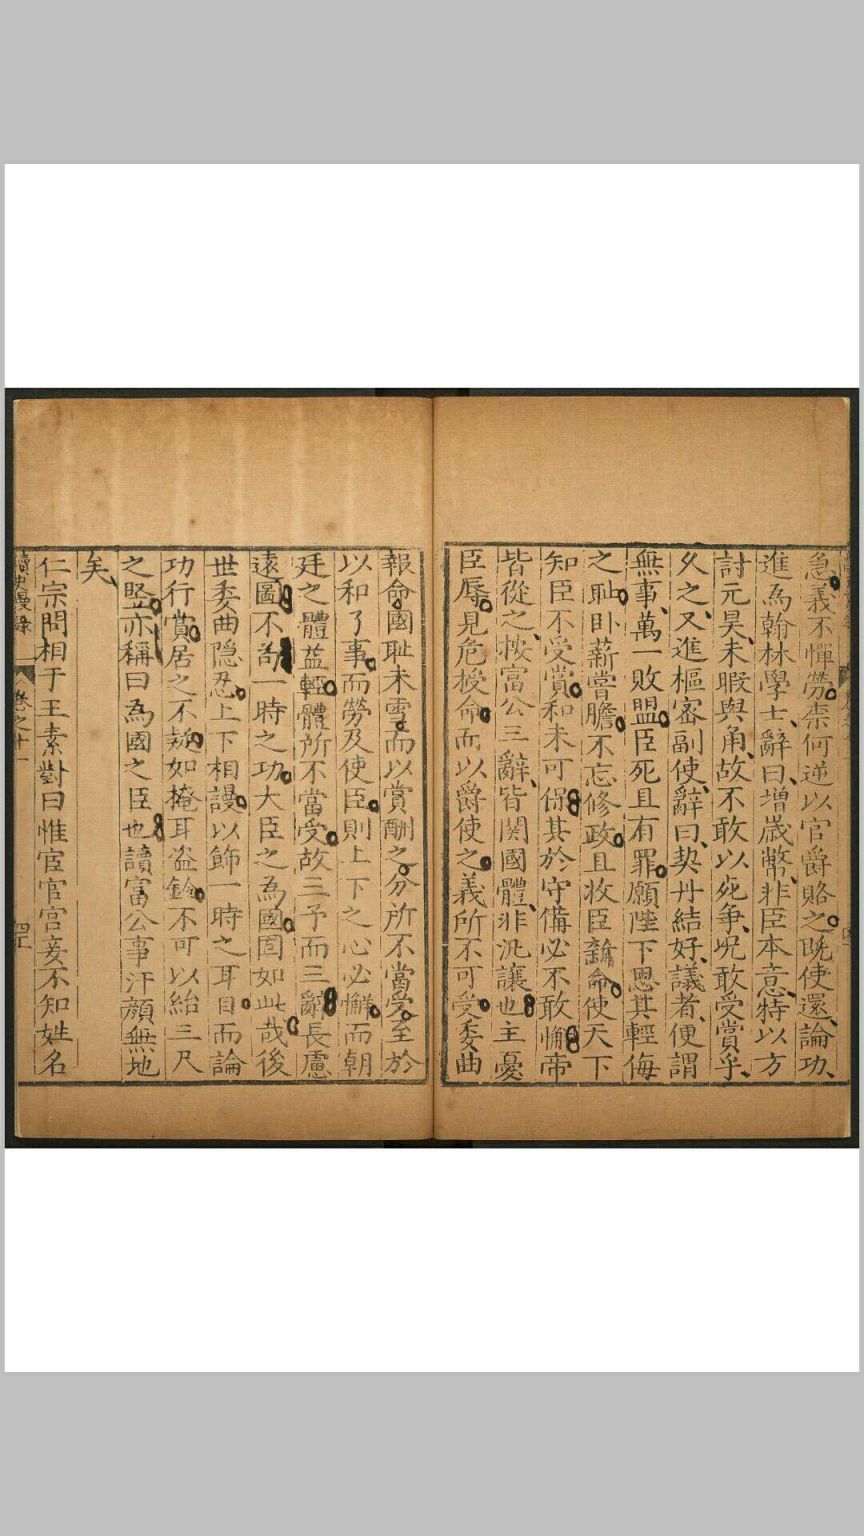 急義不憚勞柰何逆以官爵賂之既使還論功
進為翰林學士辭曰増歳幣非臣本意特以方
討元昊未暇與角故不敢以死争况敢受賞乎
久之又進樞密副使辭曰契丹結好議者便謂
無事萬一敗盟臣死且有罪願陛下思其輕侮
之耻卧薪嘗膽不忘修政且收臣新命使天下
知臣不受賞和未可保其於守備必不敢懈帝
皆從之按富公三辭皆関國體非汎讓也主憂
臣辱見危授命而以爵使之義所不可受委曲
報命國耻未雪而以賞酬之分所不當受至於
以和了事而勞及使臣則上下之心必懈而朝
廷之體益輕體所不當受故三予而三辭長慮
遠圖不
一時之功大臣之為國固如此哉後
世委曲隠忍上下相謾以飾一時之耳目而論
功行賞居之不疑如掩耳盗鈴不可以紿三尺
之竪亦稱曰為國之臣也讀富公事汗顔無地
矣
仁宗問相于王素對曰惟宦官宫妾不知姓名
讀史漫録
卷之十一